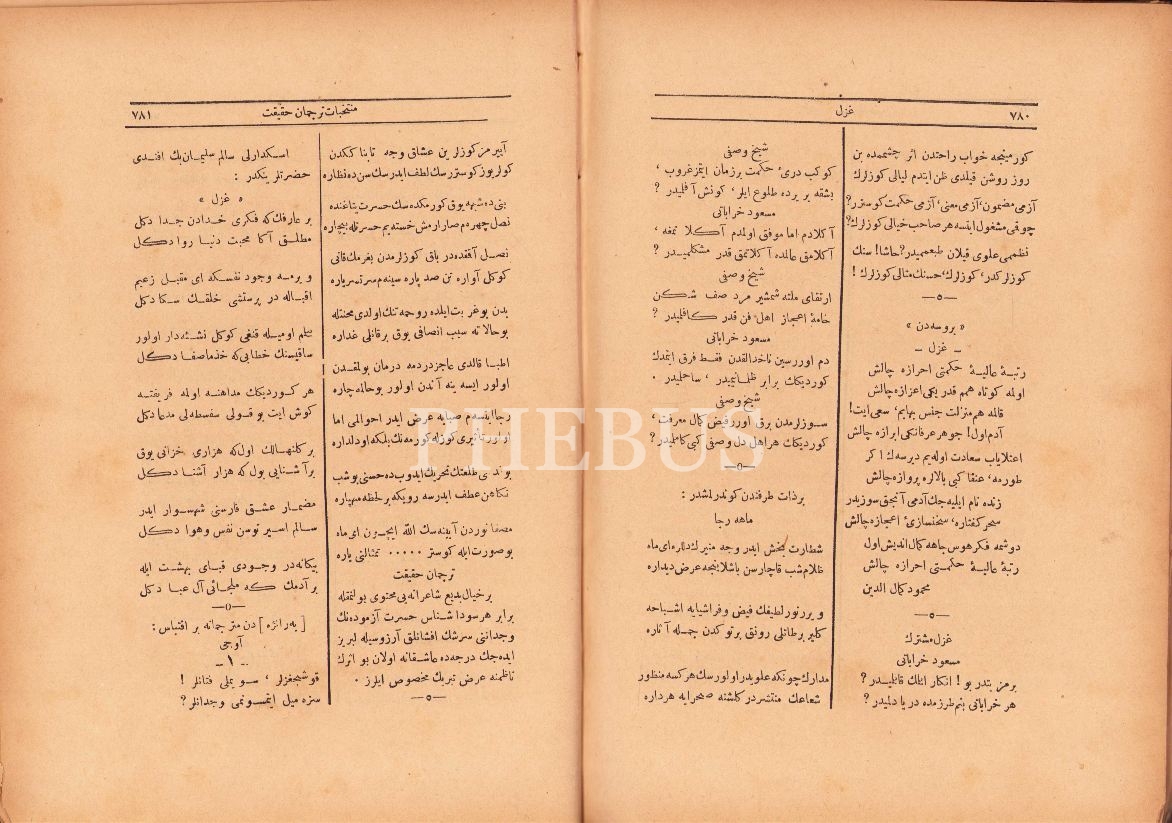 ٧٨٠
غزل
كورمينجه خواب راحتدن اثر چشممده بن
روز روشن قيلدى ظن ايتدم ليالى كوزلرك
آزمى مضمون، آزمى معنى، آزمى حكمت كوسترر؟
چوقمى مشغول ايتسه هر صاحب خيالى كوزلرك؟
نظممى علوى قيلان طبعميدر؟ حاشا! سنك
كوزلركدر، كوزلرك، حسنك مثالى كوزلرك!
« بروسه‌دن »
ـ غزل ـ
رتبهٔ عاليهٔ حكمتى احرازه چالش
اولمه كوتاه همم قدريكى اعزازه چالش
قالمه هم منزلت جنس بهايم، سعى ايت!
آدم اول! جوهر عرفانكى ابرازه چالش
اعتلاياب سعادت اوله‌يم ديرسه‌ك اكر
طورمه، عنقا كبى بالالره پروازه چالش
زنده نام ايليه‌جك آدمى آنجق سوزيدر
سحر كفتاره، سخنسازئ اعجازه چالش
دوشمه فكر هوس جاهه كمال انديش اول
رتبهٔ عاليهٔ حكمتى احرازه چالش
محمود كمال الدين
غزل مشترك
مسعود خراباتى
برمز بتدر بو! انكار ايتلك قابليدر؟
هر خراباتى بنم طرزمده دريا دلميدر؟
شيخ وصفى
كوكب درئ، حكمت برزمان ايتمز غروب،
بشقه بر يرده طلوع ايلر، كونش آفلميدر؟
مسعود خراباتى
آكلادم اما موفق اولمدم آكلاتمغه،
آكلامق عالمده آكلاتمق قدر مشكلميدر؟
شيخ وصفى
ارتقاى ملته شمشير مرد صف شكن
خامهٔ اعجاز اهل فن قدر كافلميدر؟
مسعود خراباتى
دم اوررسين ناخدالقدن فقط فرق ايتمدك
كورديكك برابر ظلمانيميدر، ساحلميدر.
شيخ وصفى
سوزلرمدن برق اوورر فيض كمال معرفت،
كورديكك هر اهل دل وصفى كبى كاملميدر؟
برذات طرفندن كوندرلمشدر:
ماهه رجا
شطارت بخش ايدر وجه منيرك دللره اى ماه
ظلام شب قاچارسن باشلاينجه عرض ديداره
ويرر نور لطيفك فيض و فر اشيايه اشباحه
كلير بر طاتلى رونق پرتوكدن جمله آثاره
مدارك چونكه علويدر اولورسك هركسه منظور
شعاعك منتشردر كلشنه صحرايه هر داره
منتخبات ترجمان حقيقت
٧٨١
آييرمز كوزلرين عشاق وجه تابناككدن
كولر يوز كوسترسك لطف ايدرسك سن ده نظاره
بنى ده شبهه يوق كورمكده‌سك حسرت يتاغنده
نصل چهره‌م صارارمش خسته‌يم حسرتله بيچاره
نصل آقمقده‌در باق كوزلرمدن يغرمك قانى
كوكل آواره تن صد پاره سينه‌م سرتسر ياره
بدن يوغر بت ايلده روحمه تنك اولدى محنتله
بو حالا نه سبب انصافى يوق بر قانلى غداره
اطبا قالدى عاجز دردمه درمان بولمقدن
اولور ايسه ينه آندن اولور بو حالمه چاره
رجا ايتسه‌م صبايه عرض ايدر احوالمى اما
اولور تأثيرى كوزله كورمه‌نك بلكه او دلداره
بوندى طلعتك تحريك ايدوب ده حسنى بو شب
نكاهن عطف ايدرسه رويكه بر لحظه مهپاره
مصفا نوردن آيينه‌سك الله ايچون اى ماه
بو صورت ايله كوستر ..... تمثالنى ياره
ترجمان حقيقت
بر خيال بديع شاعرانه‌يى محتوى بولنمقله
برابر هر سودا شناس حسرت آزموده‌نك
وجداننى سرشك افشانلق آرزوسيله لبريز
ايده‌جك درجه‌ده عاشقانه اولان بو اثرك
ناظمنه عرض تبريك مخصوص ايلرز.
اسكدارلى سالم سليمان بك افندى
حضرتلرينكدر:
« غزل »
بر عارفك كه فكرى خدادن جدا دكل
مطلق آكا محبت دنيا روا دكل
ويرمه وجود نفسكه اى مقبل زعيم
اقباله در پرستشى خلقك سكا دكل
بيلم اوميله قنغى كوكل نشئه‌دار اولور
ساقيسنك خطابى كه خذ ما صفا دكل
هر كورديكك مداهنه اوله فريفته
كوش ايت بو قولى سفسطه‌لى مدعا دكل
بر كلنهالك اول كه هزارى خزانى يوق
بر آشنايى بول كه هزار آشنا دكل
مضمار عشق فارسنى شهسوار ايدر
سالم اسير توسن نفس و هوا دكل
بيكانه‌در وجودى قباى بهشت ايله
بر آدمك كه ملتجائى آل عبا دكل
[ به رانژه ] دن مترجمانه بر اقتباس:
آوجى
ـ ١ ـ
قوشجغزلر، سويملى فتانلر!
سزه ميل ايتمسونمى وجدانلر؟
PHEBUS